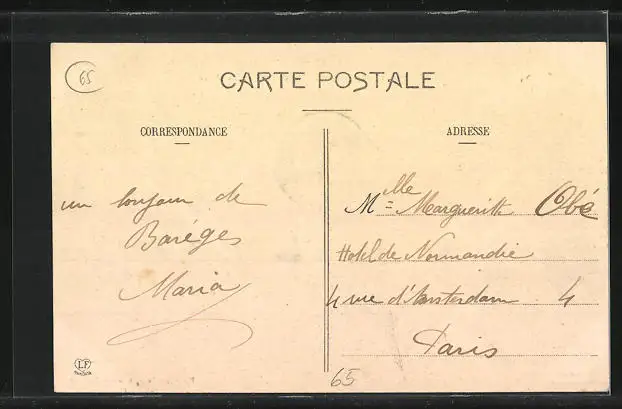 65
CARTE POSTALE
CORRESPONDANCE
un bonjour de
Baréges
Maria
LF
ADRESSE
Mlle Marguerite Obé
Hotel de Normandie
4 rue d'Amsterdam 4
Paris
65